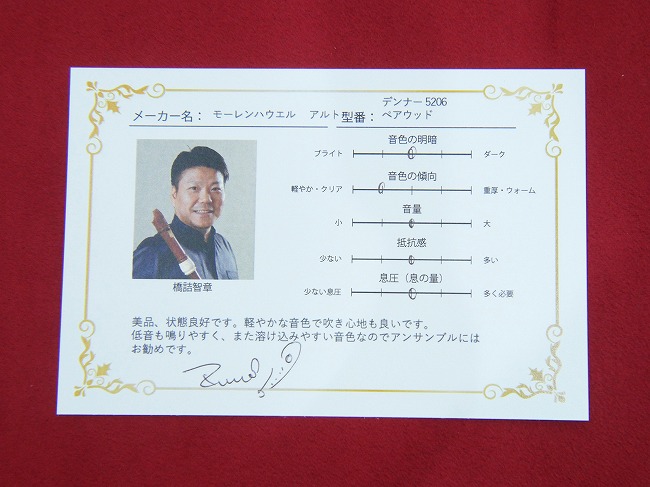 デンナー 5206
メーカー名： モーレンハウエル アルト 型番： ペアウッド
音色の明暗
ブライト ダーク
音色の傾向
軽やか・クリア 重厚・ウォーム
音量
小 大
抵抗感
少ない 多い
息圧（息の量）
少ない息圧 多く必要
橋詰智章
美品、状態良好です。軽やかな音色で吹き心地も良いです。
低音も鳴りやすく、また溶け込みやすい音色なのでアンサンブルには
お勧めです。